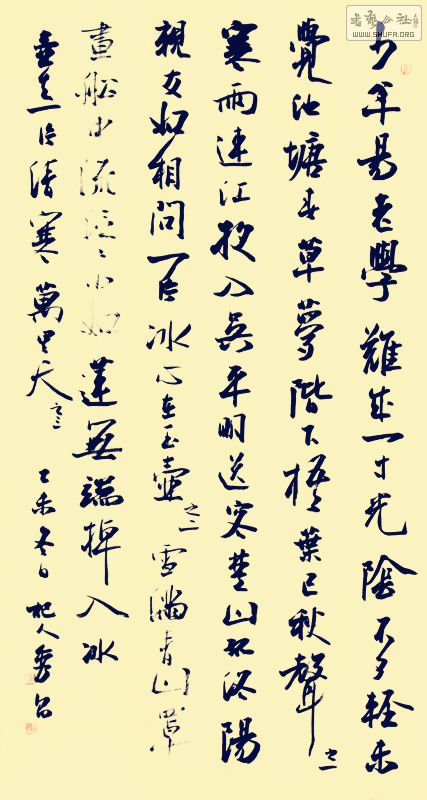 書藝公社
WWW.SHUFA.ORG
少年易老學難成一寸光陰不可輕未
覺池塘春草夢階下梧葉已秋聲 之一
寒雨連江夜入吳平明送客楚山孤洛陽
親友如相問一片冰心在玉壺 之二 雪滿青山罩
畫船中流泛泛小如蓮無端棹入冰
壺去一片清寒萬里天 之三 乙未冬日 杞人